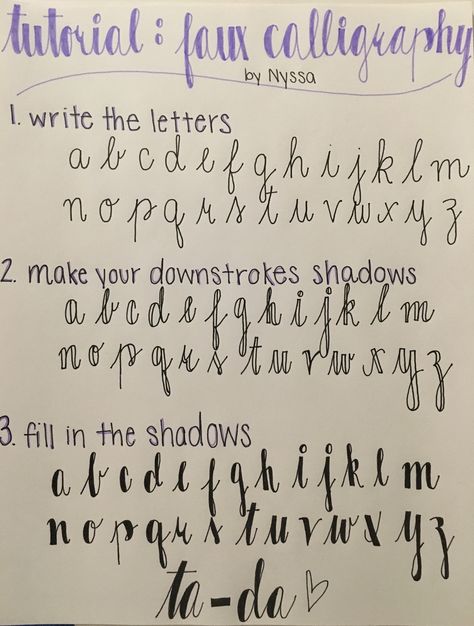 tutorial: faux calligraphy
by Nyssa
1. write the letters
a b c d e f g h i j k l m
n o p q r s t u v w x y z
2. make your downstrokes shadows
a b c d e f g h i j k l m
n o p q r s t u v w x y z
3. fill in the shadows
a b c d e f g h i j k l m
n o p q r s t u v w x y z
ta-da